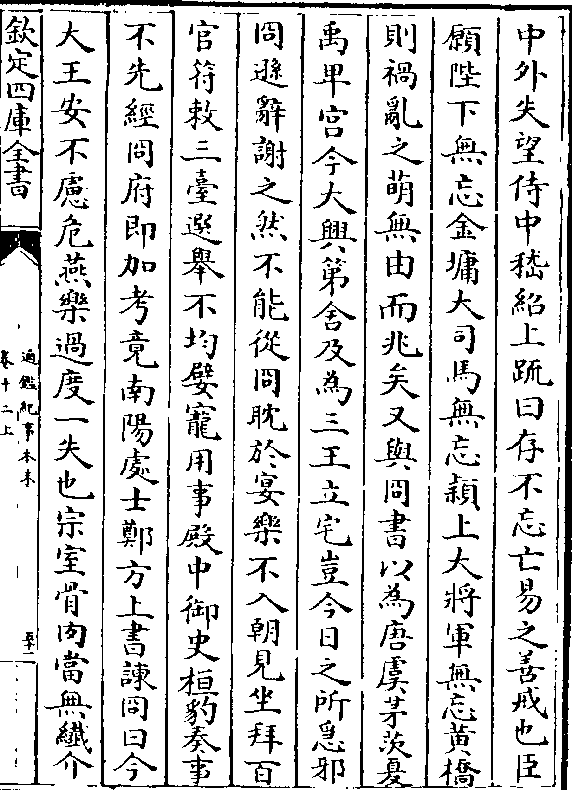 中外失望侍中嵇紹上䟽曰存不忘亡易之善戒也臣
願陛下無忘金墉大司馬無忘潁上大將軍無忘黄橋
則禍亂之萌無由而兆矣又與冏書以為唐虞茅茨夏
禹卑宫今大興第舍及為三王立宅豈今日之所急邪
冏遜辭謝之然不能從冏耽於宴樂不入朝見坐拜百
官符敕三臺選舉不均嬖寵用事殿中御史桓豹奏事
不先經冏府即加考竟南陽處士鄭方上書諫冏曰今
大王安不慮危燕樂過度一失也宗室骨肉當無纖介
欽定四庫全書
通鑑紀事本末
卷十二上